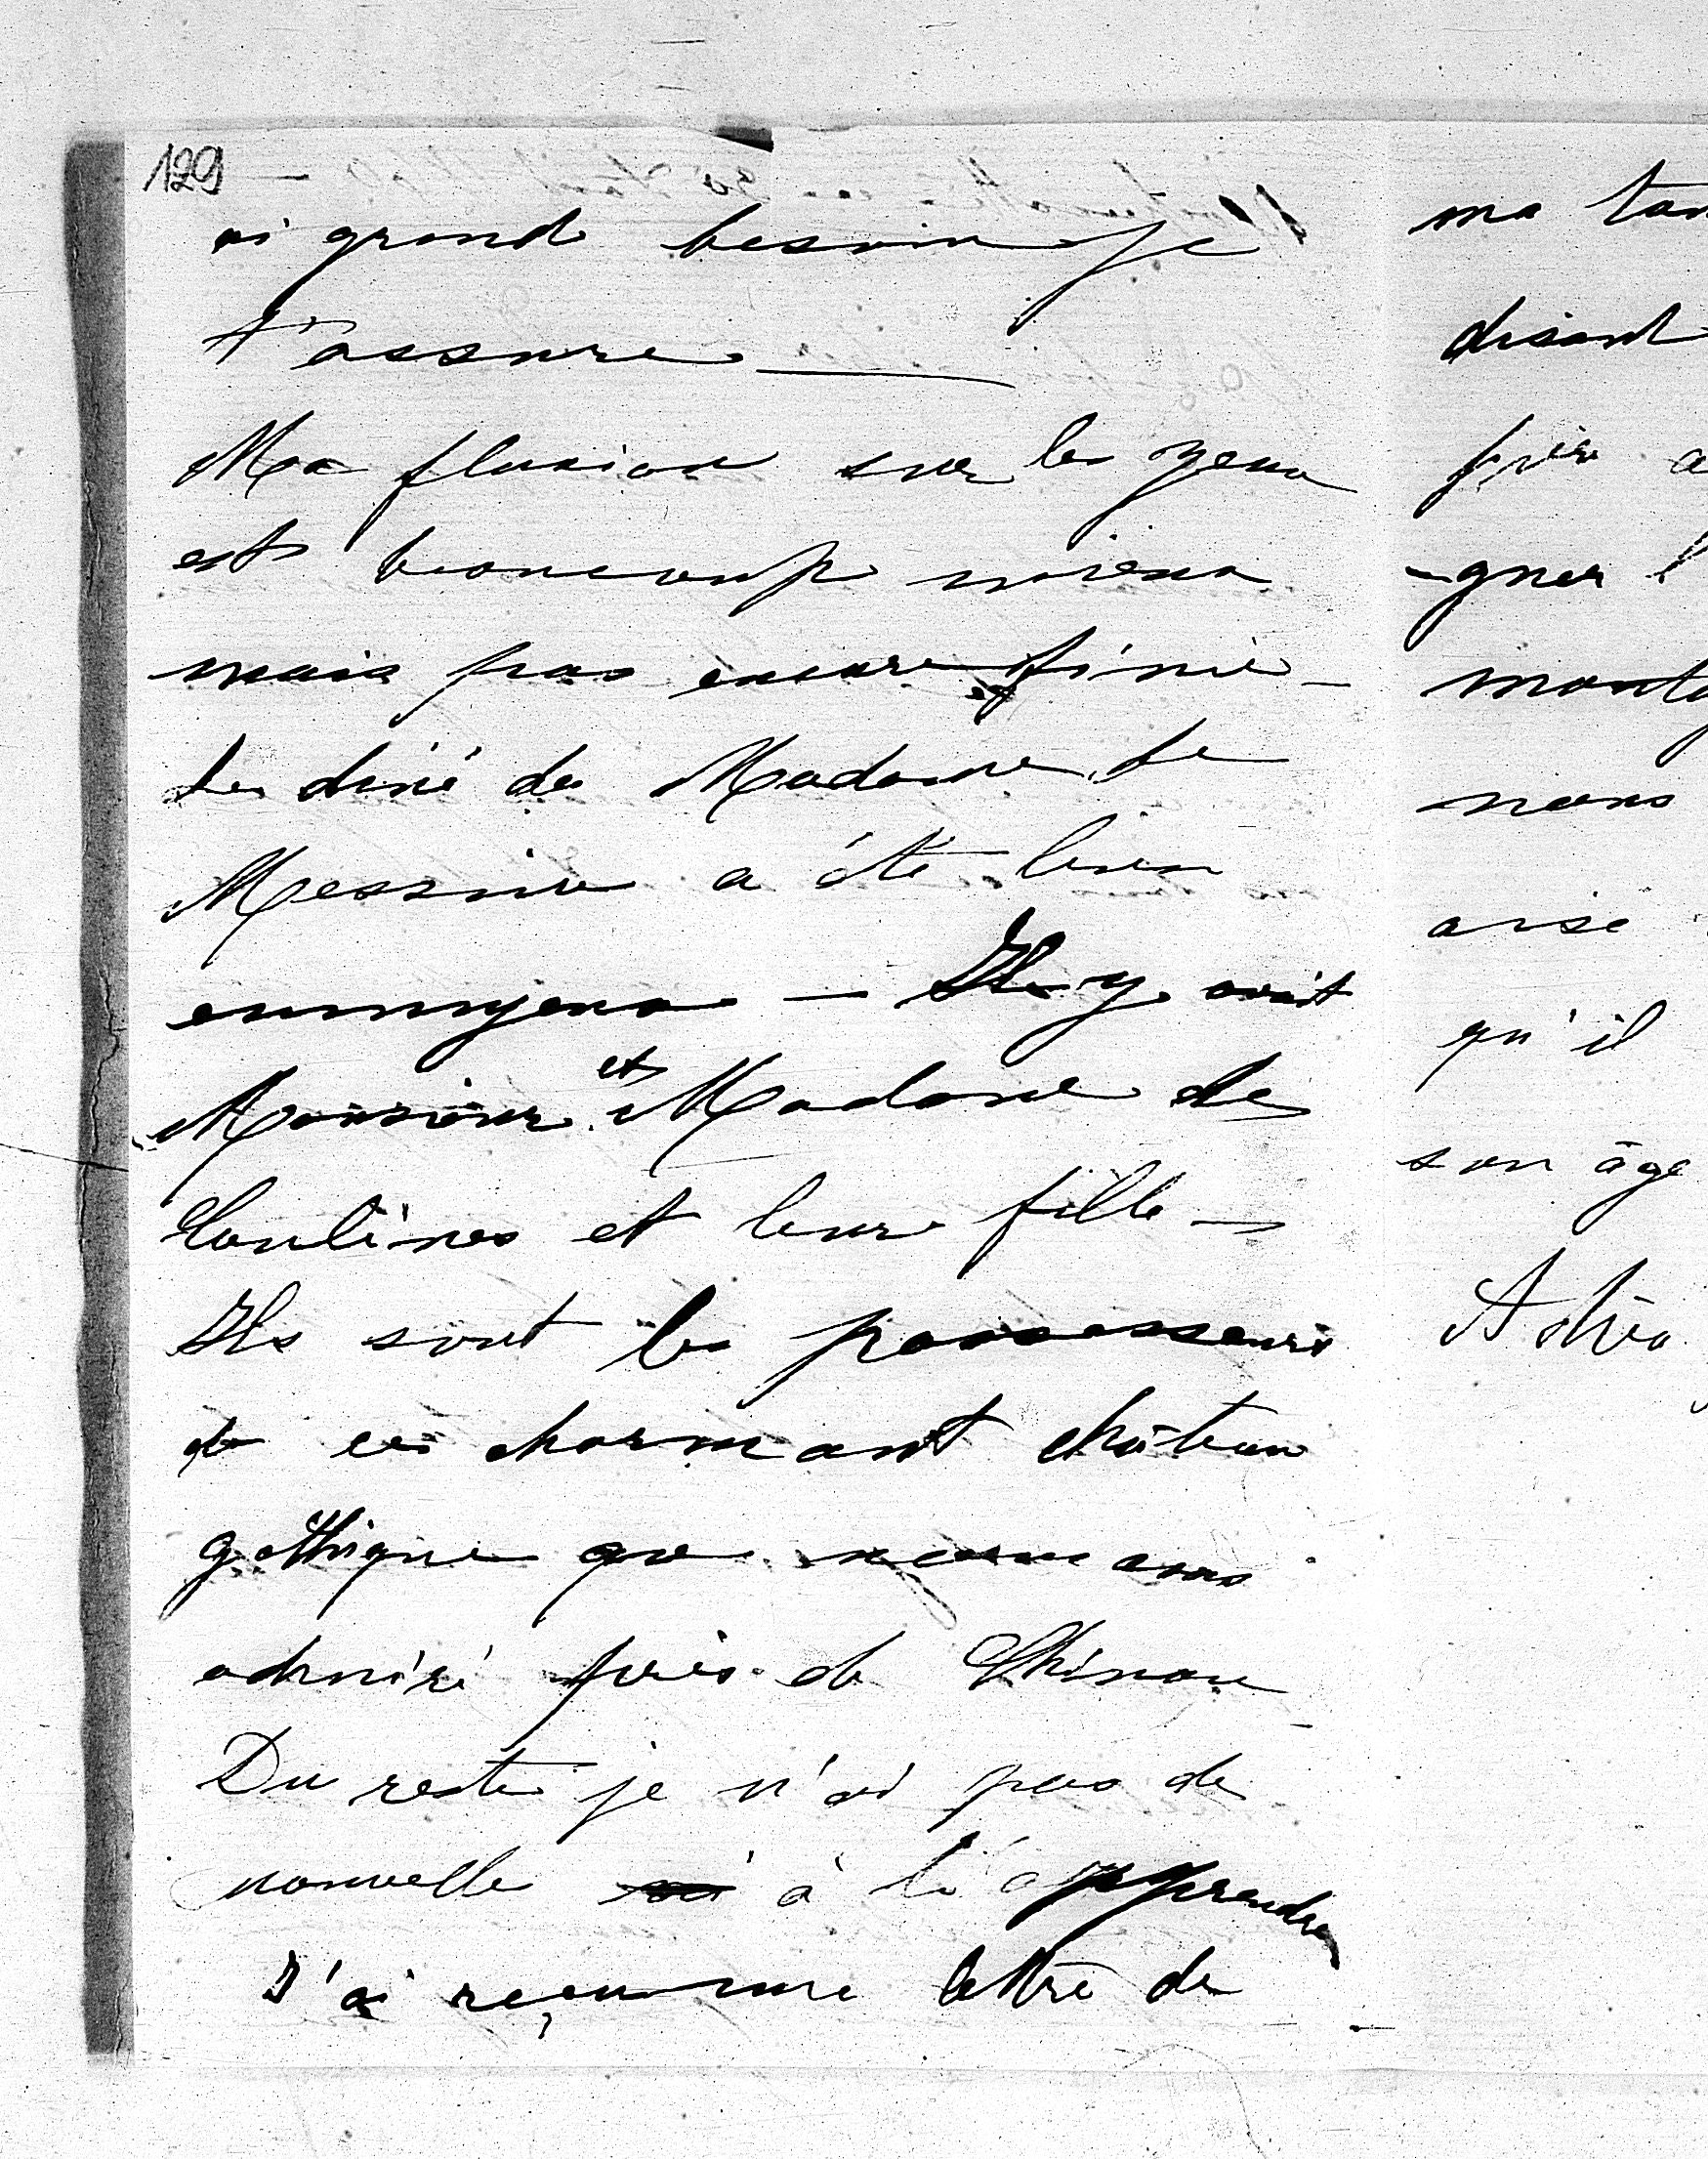 129
ai grand besoin je
t'assure
Ma fluxion sur les yeux
est beaucoup mieux
mais pas encore finie —
Le diné de Madame de
a été bien
ennuyeux — Il y avait
Monsieur et Madame de
et leur fille —
Ils sont les possesseurs
de ce charmant château
gothique que nous avons
admiré près de Chinon —
Du reste je n'ai pas de
nouvelle à t'apprendre
J'ai reçu une lettre de
ma tan
disant
père a
-gner l
monta
nous
aise
qu'il
son âge
Adieu